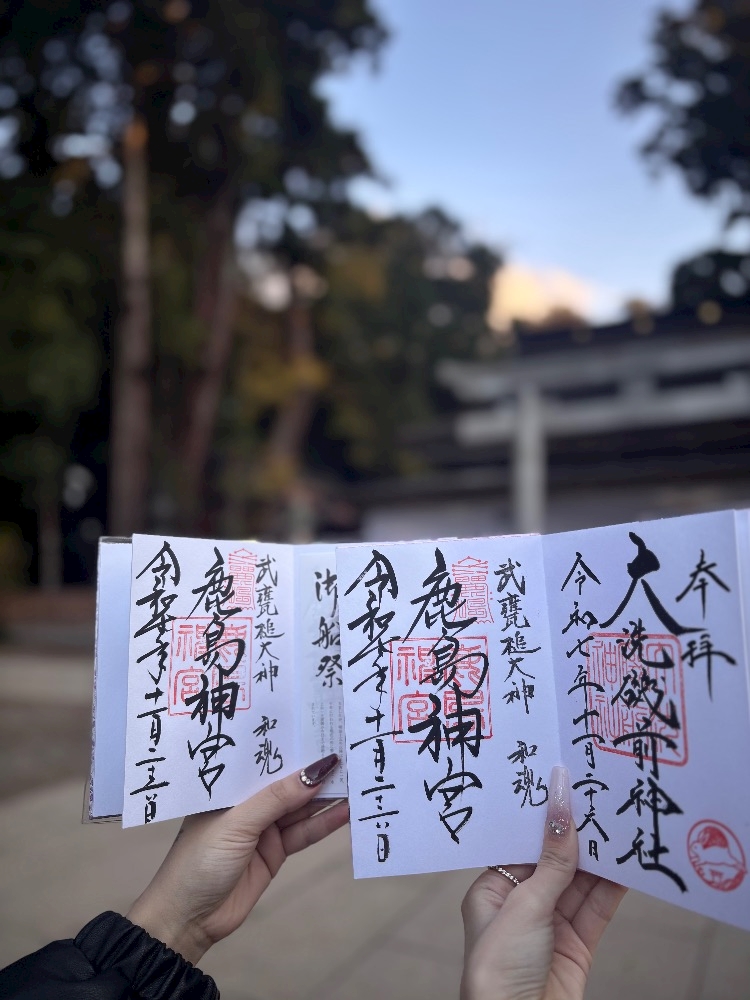 奉拝
大洗磯前神社
令和七年十一月二十六日
武甕槌大神 和魂
鹿島神宮
令和七年十一月二十六日
御船祭
武甕槌大神 和魂
鹿島神宮
令和七年十一月二十六日